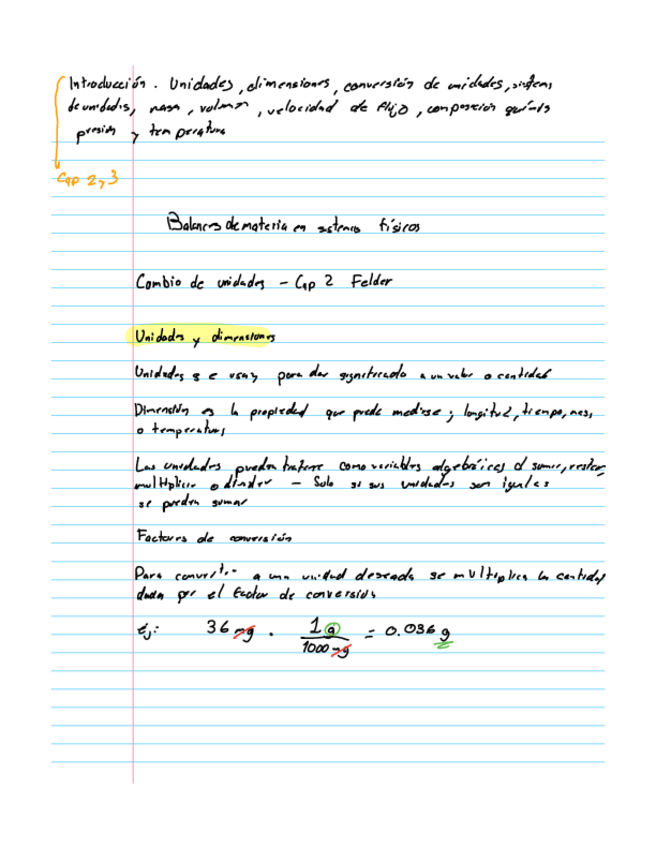 Introducción. Unidades, dimensiones, conversión de unidades, sistemas
de unidades, masa, volumen, velocidad de flujo, composición química
presión y temperatura
Cap 2, 3
Balances de materia en sistemas físicos
Cambio de unidades - Cap 2 Felder
Unidades y dimensiones
Unidades se usan para dar significado a un valor o cantidad
Dimensión es la propiedad que puede medirse; longitud, tiempo, masa,
o temperatura
Las unidades pueden tratarse como variables algebráicas al sumar, restar
multiplicar o dividir - Solo si sus unidades son iguales
se pueden sumar
Factores de conversión
Para convertir a una unidad deseada se multiplica la cantidad
dada por el factor de conversión
Ej: 36 mg · 1 g / 1000 mg = 0.036 g